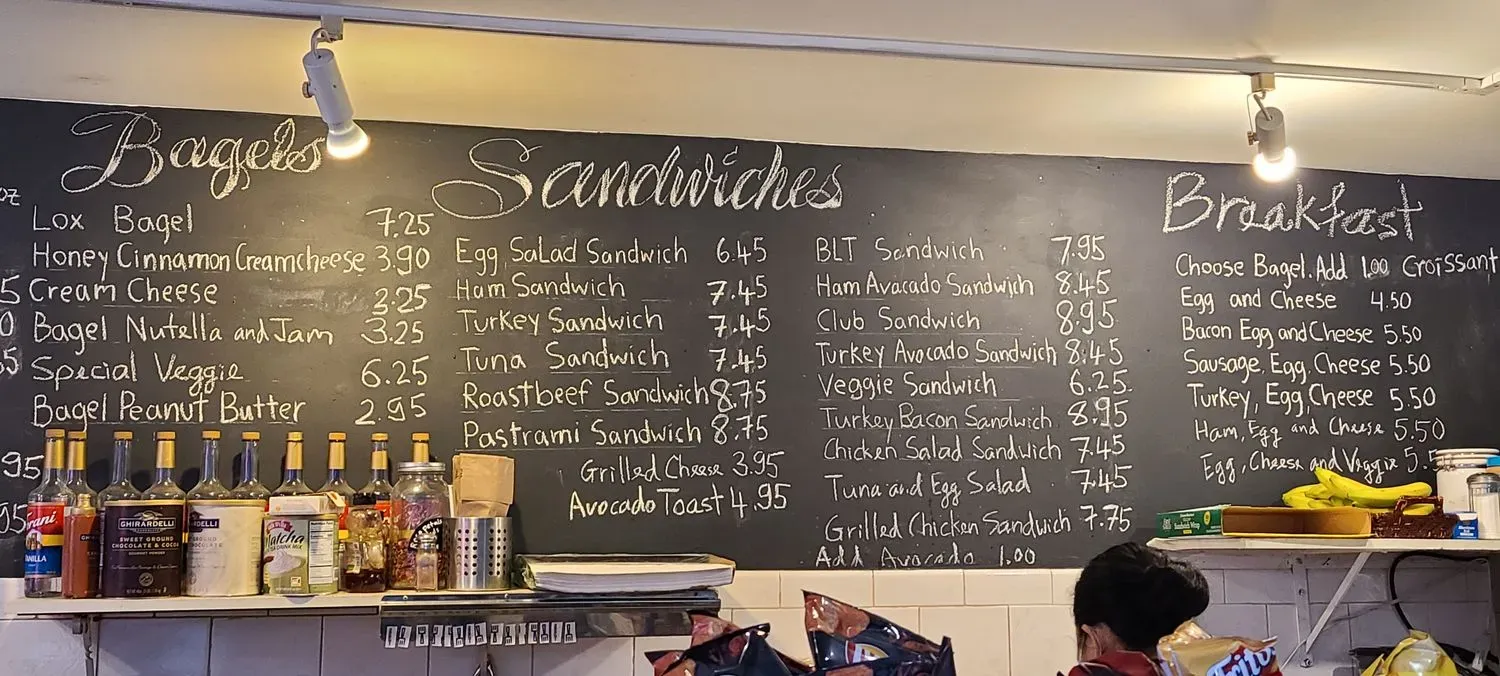 Bagels
Lox Bagel 7.25
Honey Cinnamon Creamcheese 3.90
Cream Cheese 3.25
Bagel Nutella and Jam 3.25
Special Veggie 6.25
Bagel Peanut Butter 2.95
oz
5
0
95
Sandwiches
Egg Salad Sandwich 6.45
Ham Sandwich 7.45
Turkey Sandwich 7.45
Tuna Sandwich 7.45
Roastbeef Sandwich 8.75
Pastrami Sandwich 8.75
Grilled Cheese 3.95
Avocado Toast 4.95
BLT Sandwich 7.95
Ham Avacado Sandwich 8.45
Club Sandwich 8.95
Turkey Avocado Sandwich 8.45
Veggie Sandwich 6.25
Turkey Bacon Sandwich 8.95
Chicken Salad Sandwich 7.45
Tuna and Egg Salad 7.45
Grilled Chicken Sandwich 7.75
Add Avocado 1.00
Breakfast
Choose Bagel. Add 1.00 Croissant
Egg and Cheese 4.50
Bacon Egg and Cheese 5.50
Sausage, Egg, Cheese 5.50
Turkey, Egg, Cheese 5.50
Ham, Egg and Cheese 5.50
Egg, Cheese and Veggie 5.5
rani
VANILLA
GHIRARDELLI
SWEET GROUND
CHOCOLATE & COCOA
DELLI
Matcha
DRINK MIX
Petals
Fritos